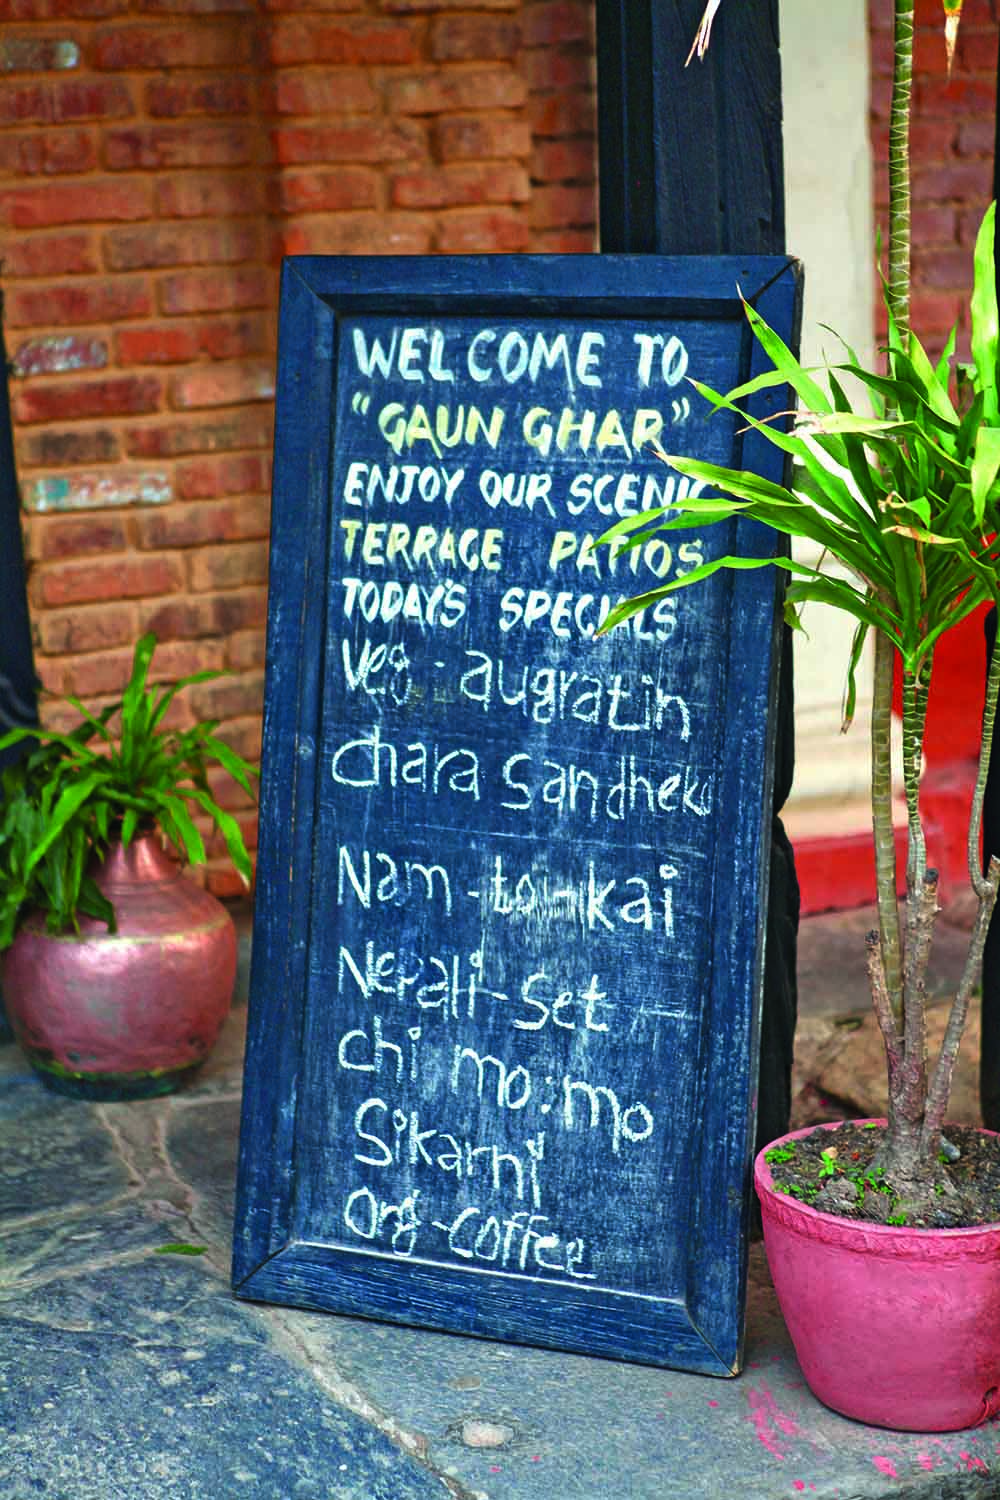 WELCOME TO
"GAUN GHAR"
ENJOY OUR SCENIC
TERRACE PATIOS
TODAY'S SPECIALS
Veg - augratin
chara Sandheko
Nam-to-kai
Nepali-Set
chi mo:mo
Sikarni
Org-coffee